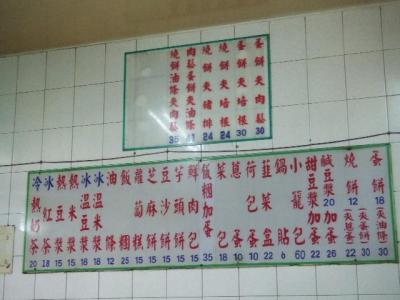 蛋餅夾肉鬆 30
蛋餅夾培根 30
燒餅夾培根 24
燒餅夾豬排 24
燒餅油條夾肉鬆 35
蛋餅 18
(夾油條) 30
燒餅 12
(夾蔥蛋) 30
(夾蛋) 22
鹹豆漿 20
加蛋 26
甜豆漿加蛋 22
小籠包 60
鍋貼 6
韭菜盒 22
荷包蛋 10
蔥蛋
菜包 10
飯糰加蛋 35
鮮肉包 15
芋頭餅 15
豆沙餅 15
芝麻餅 15
蘿蔔糕
飯糰 25
油條 12
冰溫米漿 18
冰溫豆漿 18
熱米漿 15
熱豆漿 15
冰紅茶 18
冷熱奶茶 20